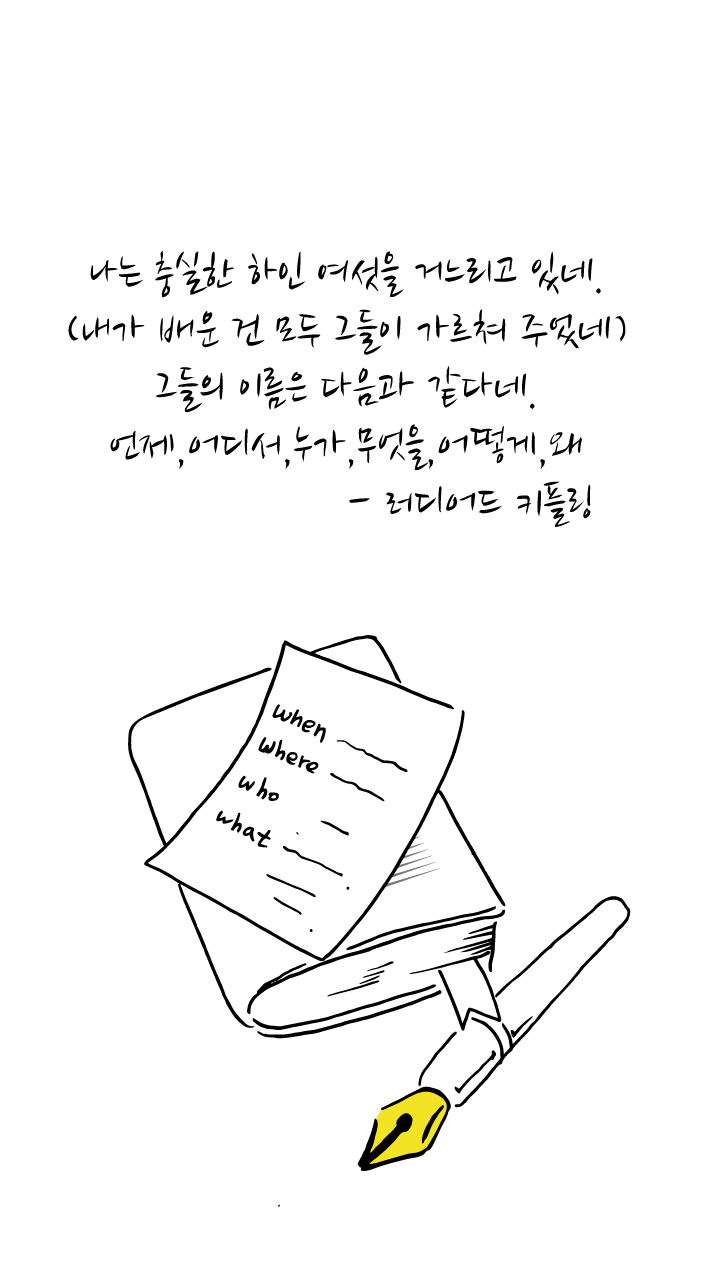 나는 충실한 하인 여섯을 거느리고 있네.
(내가 배운 건 모두 그들이 가르쳐 주었네)
그들의 이름은 다음과 같다네.
언제,어디서,누가,무엇을,어떻게,왜
- 러디어드 키플링
when
where
who
what